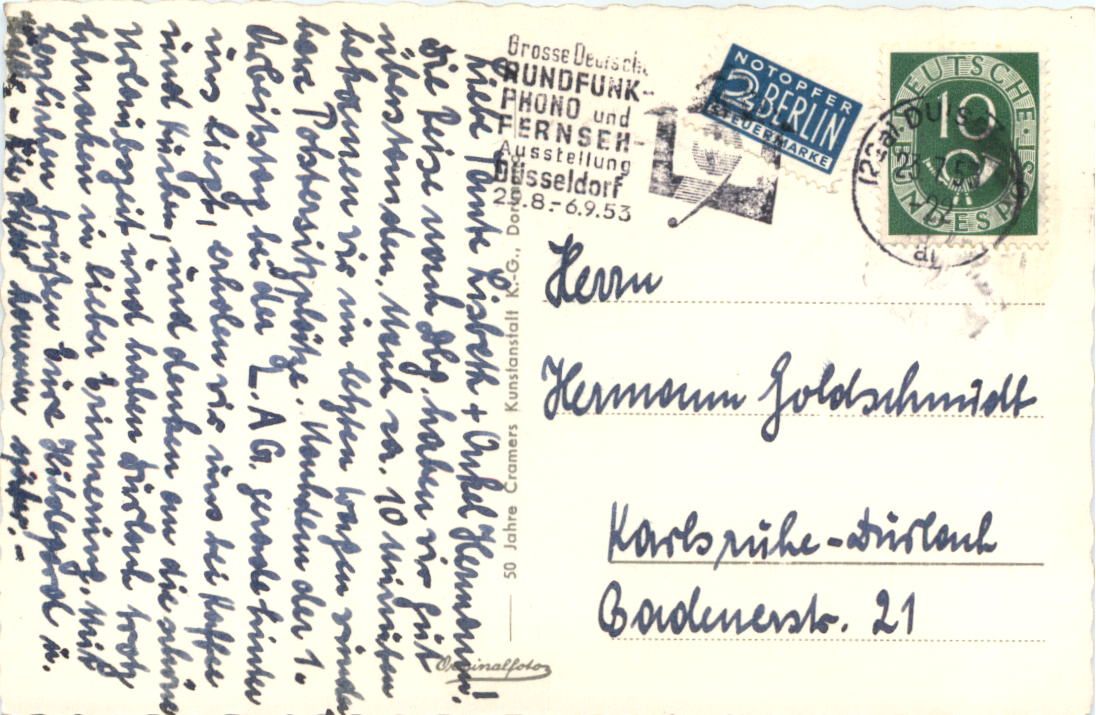 Liebe Tante Lisbeth + Onkel Hermann!
Die Reise nach Dbg. haben wir gut
überstanden. Nach ca. 10 Minuten
bekamen wir im letzten Wagen wunder-
bare Polstersitzplätze. Nachdem der 1.
Arbeitstag bei der L.AG. gerade hinter
uns liegt, erholen wir uns bei Kaffee
und Kuchen, und denken an die schöne
Urlaubszeit und haben Durlach trotz
in lieber Erinnerung. Mit
herzlichen Grüßen Eure Hildegard u.
Bilder kommen später. –
50 Jahre Cramers Kunstanstalt K.-G., Dortmund
Originalfoto
Grosse Deutsche
RUNDFUNK-
PHONO und
FERNSEH-
Ausstellung
Düsseldorf
29.8.-6.9.53
NOTOPFER
2 BERLIN
STEUERMARKE
DEUTSCHE
BUNDESPOST
10
(22a) DUISBURG
Herrn
Hermann Goldschmidt
Karlsruhe-Durlach
Badenerstr. 21